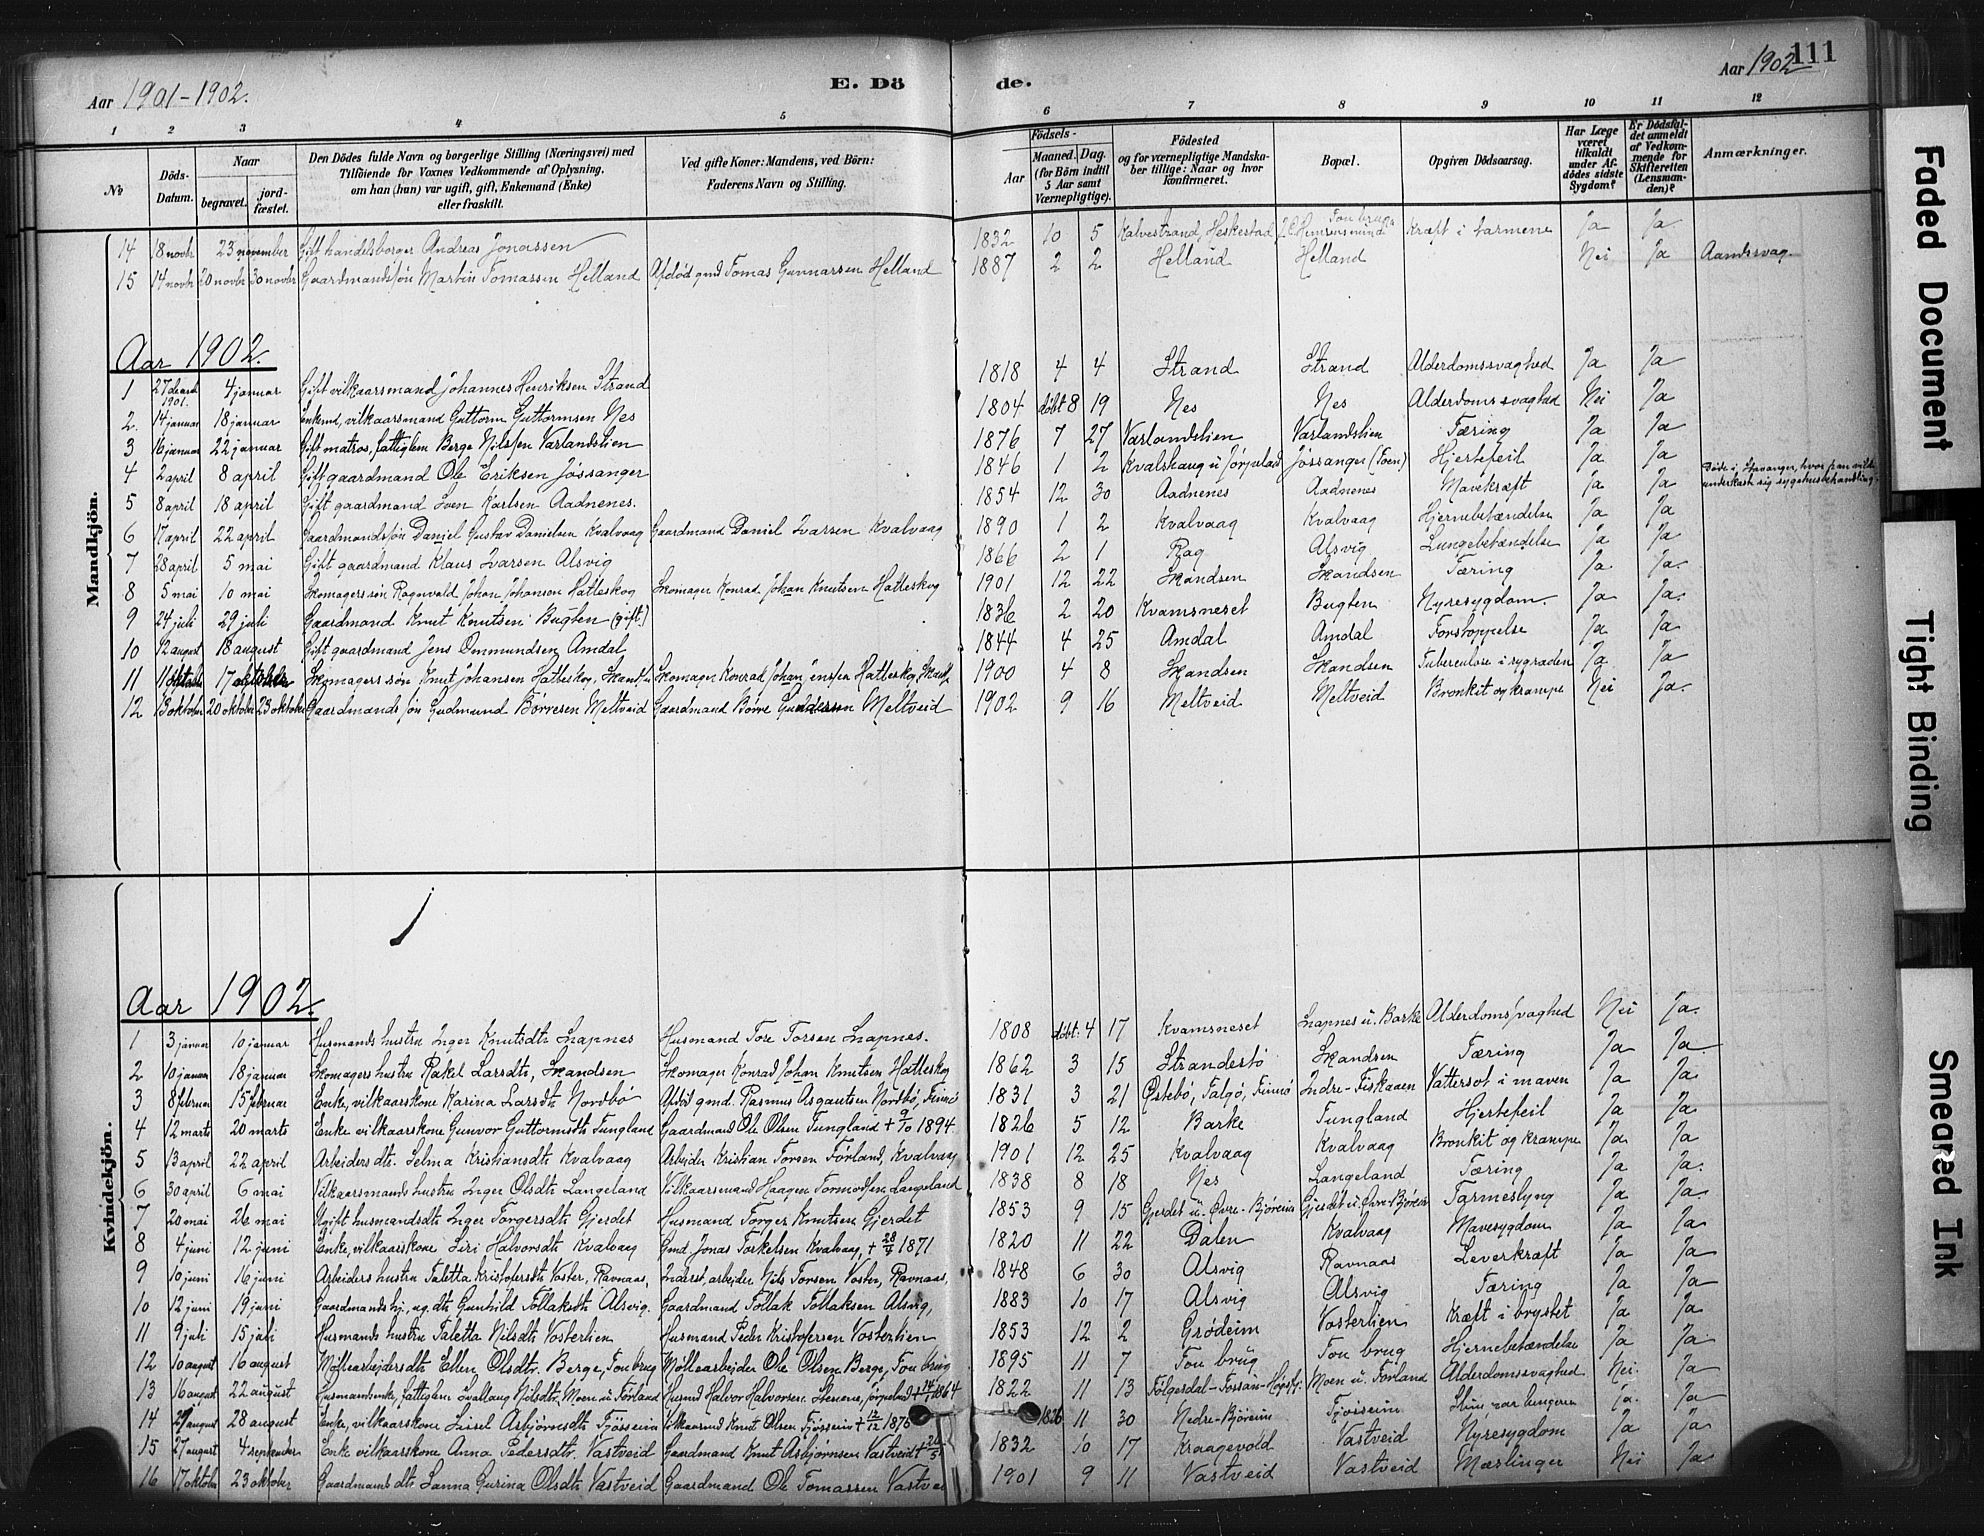 Aar 1901-1902. E. Dö de. Aar 1902 111
1 2 3 4 5 6 7 8 9 10 11 12
No
Döds-Datum.
Naar begravet. jord-fæstet.
Den Dödes fulde Navn og borgerlige Stilling (Næringsvei) med Tilföiende for Voxnes Vedkommende af Oplysning, om han (hun) var ugift, gift, Enkemand (Enke) eller fraskilt.
Ved gifte Koner: Mandens, ved Börn: Faderens Navn og Stilling.
Födsels-
Aar
Maaned. Dag. (for Börn indtil 5 Aar samt Værnepligtige).
Födested og for værnepligtige Mandskaber tillige: Naar og hvor konfirmeret.
Bopæl.
Opgiven Dödsaarsag.
Har Læge været tilkaldt under Afdödes sidste Sygdom?
Er Dödsfaldet anmeldt af Vedkommende for Skifteretten (Lensmanden)?
Anmærkninger.
Mandkjön.
14 18 novbr 23 november Gift handelsborger Andreas Jonassen 1832 10 5 Kalvestrand, Heskestad Tou brug Kræft i tarmene Ja Ja
15 14 novbr 20 novbr 30 novbr Gaardmandssøn Martin Tomassen Helland Afdød gmd Tomas Gunnarsen Helland 1887 2 2 Helland Helland Nei Ja Aandssvag.
Aar 1902.
1 27 decbr 1901. 4 januar Gift vilkaarsmand Johannes Henriksen Strand 1818 4 4 Strand Strand Alderdomssvaghed Ja Ja
2. 14 januar 18 januar Enkemd, vilkaarsmand Guttorm Guttormsen Nes 1804 døbt 8 19 Nes Nes Alderdomssvaghed Nei Ja
3 16 januar 22 januar Gift matros, fattiglem Berge Nilssen Varlandslien 1876 7 27 Varlandslien Varlandslien Tæring Ja Ja
4 2 april 8 april Gift gaardmand Ole Eriksen Jøssanger 1846 1 2 Kvalshaug u Jørpeland Jøssanger (Toen) Hjertefeil Ja Ja Døde i Stavanger, hvor han vilde underkaste sig sygehusbehandling.
5 8 april 18 april Gift gaardmand Sven Karlsen Aadnenes. 1854 12 30 Aadnenes Aadnenes Mavekræft Ja Ja
6 17 april 22 april Gaardmandssøn Daniel Gustav Danielsen Kvalvaag Gaardmand Daniel Ivarsen Kvalvaag 1890 1 2 Kvalvaag Kvalvaag Hjernebetændelse Ja Ja
7 28 april 5 mai Gift gaardmand Klaus Ivarsen Alsvig 1866 2 1 Rag Alsvig Lungebetændelse Ja Ja
8 5 mai 10 mai Skomagerssøn Ragnvald Johan Johansen Hatleskog Skomager Konrad Johan Knutsen Hatleskog 1901 12 22 Skandsen Skandsen Tæring Ja Ja.
9 24 juli 29 juli Gaardmand Knut Knutsen Bugten (gift) 1836 2 20 Kvamsneset Bugten Nyresygdom. Ja Ja.
10 12 august 18 august Gift gaardmand Jens Ommundsen Amdal 1844 4 25 Amdal Amdal Forstoppelse Ja Ja
11 11 oktober 17 oktober Skomagerssøn Knut Johansen Hatleskog, Skandsen Skomager Konrad Johan Hatleskog, 1900 4 8 Skandsen Skandsen Tuberculose i rygraden Ja Ja
12 13 oktober 20 oktober 23 oktober Gaardmandssøn Gudmund Børresen Meltveid Gaardmand Børre Gundersen Meltveid 1902 9 16 Meltveid Meltveid Bronkit og krampe Nei Ja.
Kvindekjön.
Aar 1902.
1 3 januar 10 januar Husmands hustru Inger Knutsdtr Lapnes Husmand Tore Torsen Lapnes. 1808 døbt. 4 17 Kvamsneset Lapnes u. Barke Alderdomssvaghed Nei Ja.
2 10 januar 18 januar Skomagers hustru Rakel Larsdtr, Skandsen Skomager Konrad Johan Knutsen Hatleskog 1862 3 15 Strandestø Skandsen Tæring Ja Ja
3 8 februar 15 februar Enke, vilkaarskone Karina Larsdtr Nordbø Afdød gmd. Rasmus Asgautsen Nordbø, Finnø 1831 3 21 Østebø, Talgø, Finnø Indre-Fiskaaen Vattersot i maven Ja Ja
4 12 marts 20 marts Enke vilkaarskone Gunvor Guttormsdtr Tungland Gaardmand Ole Olsen Tungland + 9/10 1894 1826 5 12 Barke Tungland Hjertefeil Ja Ja
5 13 april 22 april Arbeiders dtr. Selma Kristiansdtr Kvalvaag Arbejder Kristian Torsen Førland, Kvalvaag 1901 12 25 Kvalvaag Kvalvaag Bronkit og krampe Ja Ja
6 30 april 6 mai Vilkaarsmands hustru Inger Olsdtr Langeland Vilkaarsmand Haagen Tormodsen Langeland 1838 8 18 Nes Langeland Tæring Ja Ja.
7 20 mai 26 mai Ugift husmandsdtr Inger Torgersdtr Gjerdet Husmand Torger Knutsen Gjerdet 1853 9 15 Gjerdet u. Øvre-Bjøreim Gjerdet u. Øvre-Bjøreim Tarmeslyng Ja Ja
8 4 juni 12 juni Enke, vilkaarskone Siri Halvorsdtr Kvalvaag Gmd. Jonas Torkelsen Kvalvaag, + 28/4 1871 1820 11 22 Dalen Kvalvaag Mavesygdom Ja Ja
9 10 juni 16 juni Arbeiders hustru Taletta Kristofersdtr Voster, Ravnaas, Inderst, arbejder Nils Torsen Voster, Ravnaas, 1848 6 30 Alsvig Ravnaas Leverkræft Ja Ja
10 12 juni 19 juni Gaardmands ug. dtr Gunhild Tollaksdtr Alsvig. Gaardmand Tollak Tollaksen Alsvig, 1883 10 17 Alsvig Alsvig Tæring Ja Ja
11 9 juli 15 juli Husmands hustru Taletta Nilsdtr Vosterlien Husmand Peder Kristofersen Vosterlien 1853 12 2 Grødeim Vosterlien Kræft i brystet Ja Ja
12 10 august 16 august Møllearbejdersdtr Ellen Olsdtr. Berge, Tou brug Møllearbejder Ole Olsen Berge, Tou brug 1895 11 7 Tou brug Tou brug Hjernebetændelse Ja Ja
13 16 august 22 august Husmandsenke, fattiglem Svallaug Nilsdtr. Moen u. Førland Husmd Halvor Halvorsen Stenene, Jørpeland 1864 1822 11 13 Følgesdal-Fossan-Høgsfj. Moen u. Førland Alderdomssvaghed Nei Ja
14 21 august 28 august Enke, vilkaarskone Sissel Asbjørnsdtr Tjøsseim Vilkaarsmd Knut Olsen Tjøsseim + 12/12 1876 1826 11 30 Nedre-Bjøreim Tjøsseim Slim var lungerne Ja. Ja
15 27 august 4 september Enke vilkaarskone Anna Pedersdtr. Vastveid Gaardmand Knut Asbjørnsen Vastveid 1832 10 17 Kraagevold Vastveid Nyresygdom Ja Ja
16 17 oktober 23 oktober Gaardmands dtr Sanna Gurina Olsdtr Vastveid Gaardmand Ole Tomassen Vastveid 1901 9 11 Vastveid Vastveid Mæslinger Nei Ja
Faded Document
Tight Binding
Smeared Ink